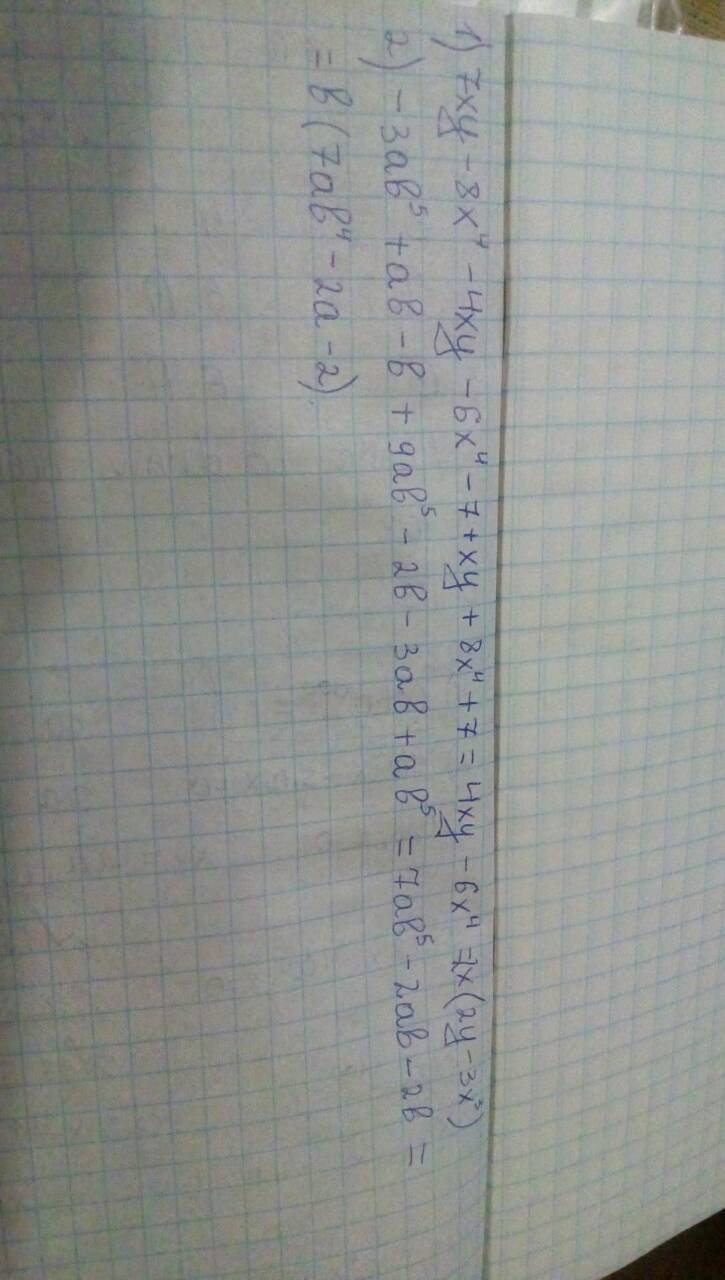 1) 7xy - 8x⁴ - 4xy - 6x⁴ - 7 + xy + 8x⁴ + 7 = 4xy - 6x⁴ = 2x(2y - 3x³)
2) - 3ab⁵ + ab - b + 9ab⁵ - 2b - 3ab + ab⁵ = 7ab⁵ - 2ab - 2b =
= b(7ab⁴ - 2a - 2)